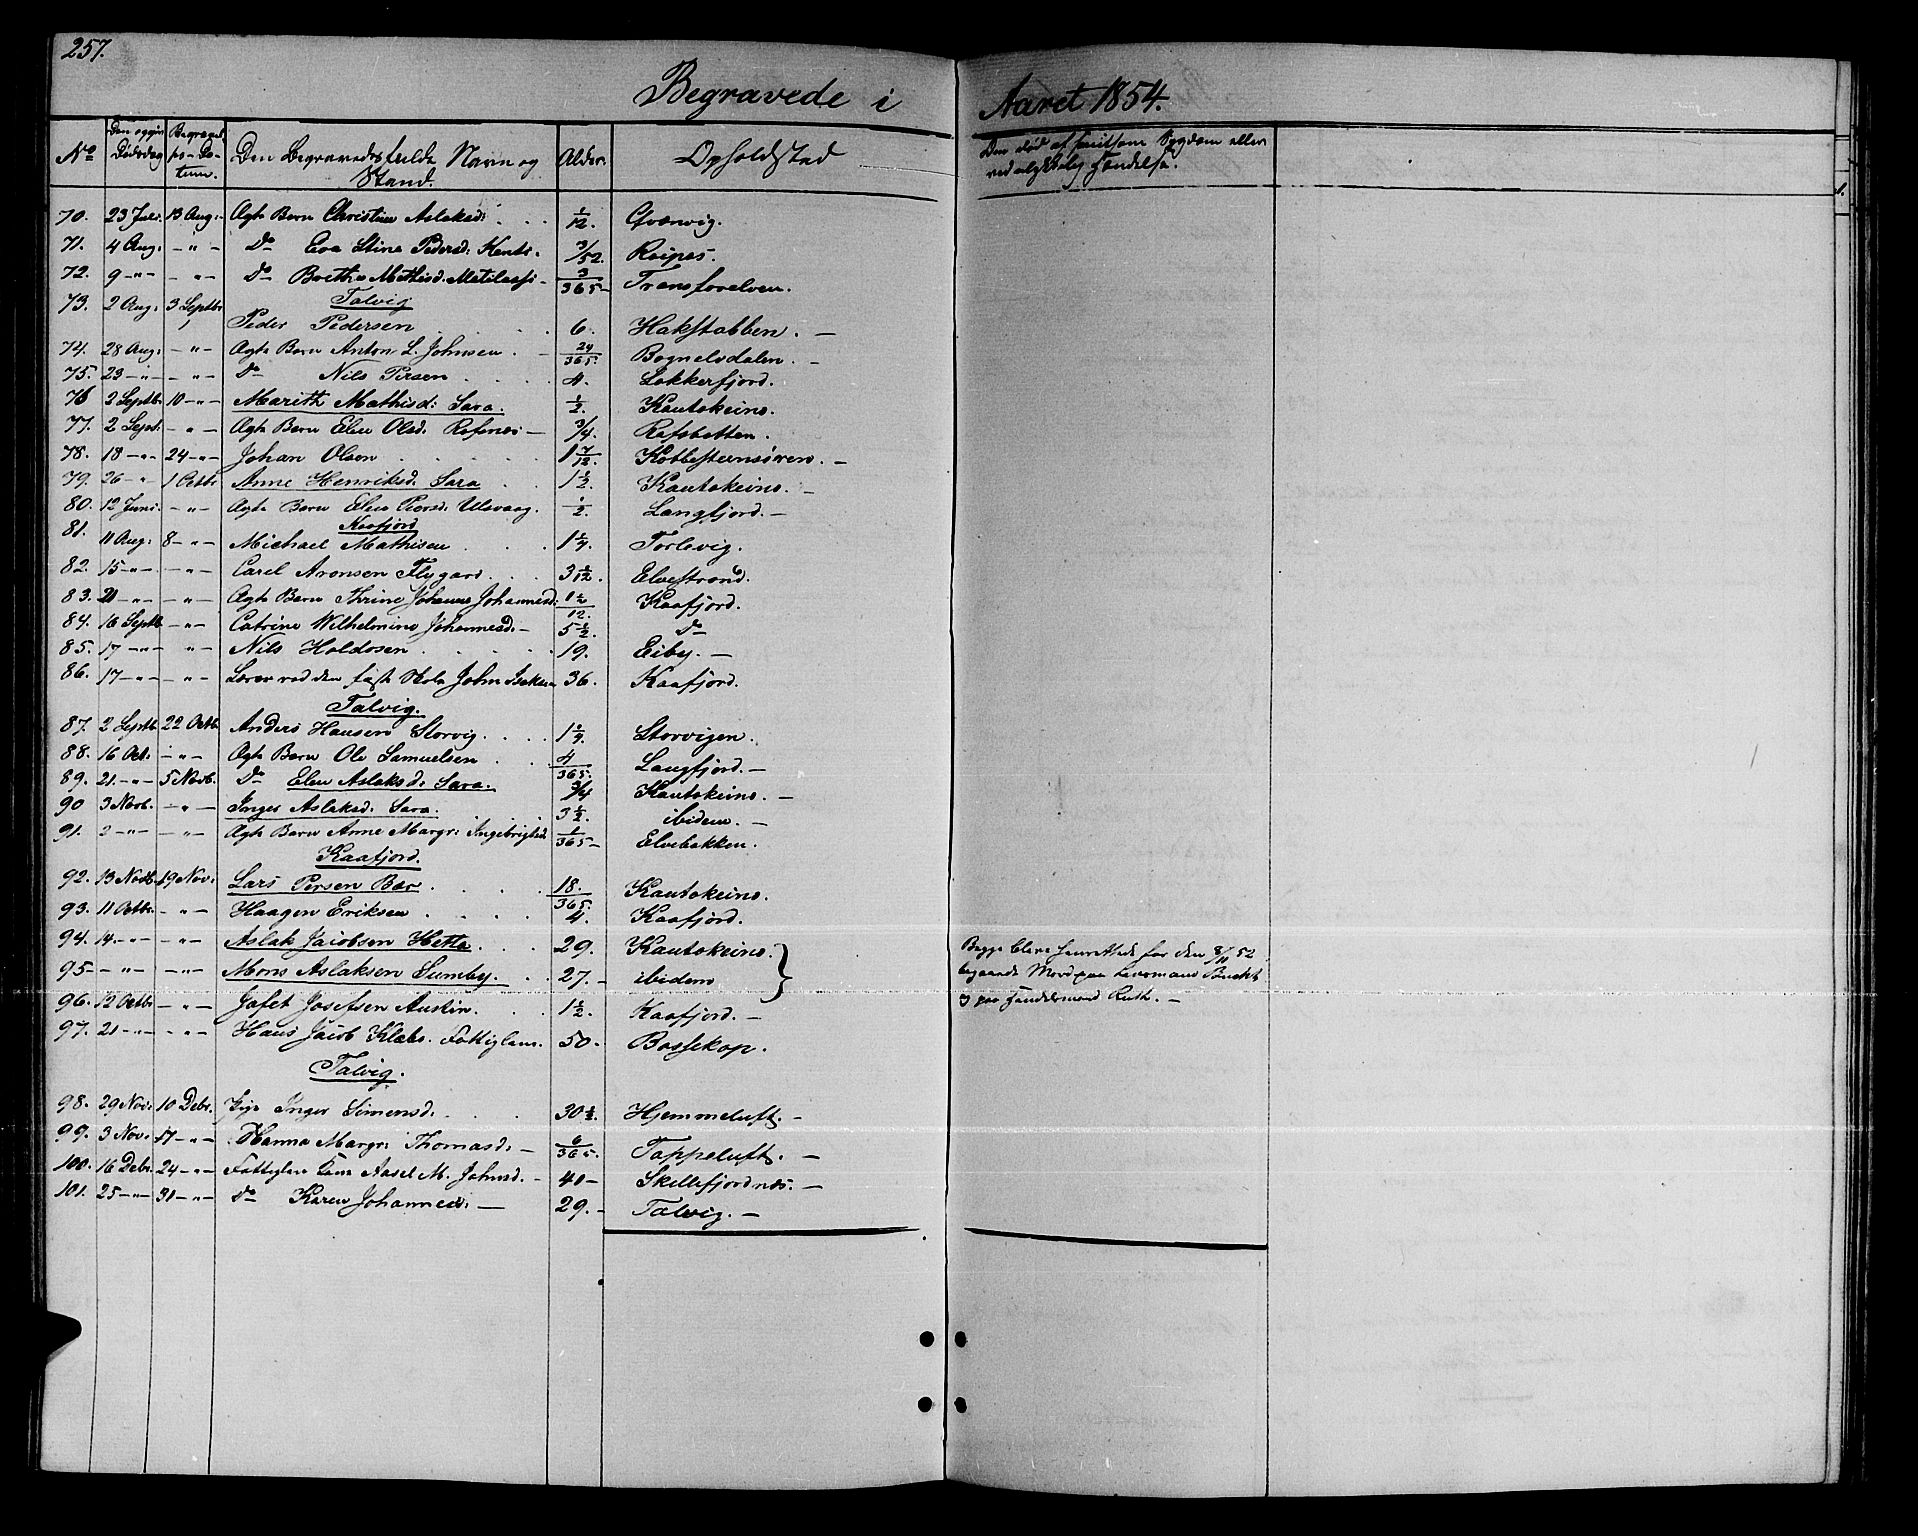 257.
Begravede i Aaret 1854.
No Den opgivne Dødsdag Begravelses-Datum. Den Begravedes fulde Navn og Stand. Alder. Opholdsted Om død af smitsom Sygdom eller ved ulykkelig Hændelse.
70. 23 Juli. 13 Aug: Ægte Barn Christine Aslaksd: 1/12. Qvænvig.
71. 4 Aug: - " - Do Eva Stine Pedersd: Kents. 3/52. Raipas.
72. 9 - " - - " - Do Brethe Mathisd: Matilassi - 3/365 - Transfarelven.
Talvig
73. 2 Aug: 3 Septbr Peder Pedersen 6. Hakstabben. -
74. 28 Aug: - " - Ægte Barn Anton L. Johnsen. - 24/365. Bognelvdalen. -
75. 23 - " - - " - Do Nils Persen 4. Lokkerfjord.
76 2 Septb. 10 - " - Marith Mathisd: Sara. 1/2. Kautokeino.
77. 2 Sept. - " - Ægte Barn Elen Olsd: Refsnæs - 3/4. Rafsbotten.
78. 18 - " - 24 - " - Johan Olsen 1 7/12. -
79. 26 - " 1 Octbr Anne Henriksd: Sara 1 1/2. Kautokeino. -
80. 12 Juni. - " - Ægte Barn Elen Piersd: Ulsvaag. 1/2. Langfjord. -
Kaafjord
81. 11 Aug: 8 - " - Michael Mathisen 1 1/4. Torlevig.
82. 15 - " - - " - Carel Aronsen Flygard. 3 1/12. Elvestrand.
83. 21 - " - - " - Ægte Barn Thrine Johanne Johannesd: 1 1/2/12. Kaafjord.
84. 16 Septb - " - Catrine Wilhelmine Johannesd: - 5 1/2. Do
85. 17 - " - " - Nils Holdosen 19. Eiby. -
86. 17 - " - - " - Lærer ved den faste Skole John Isaksen 36. Kaafjord.
Talvig.
87. 2 Septb. 22 Octb. Anders Hansen Storvig. Storvigen.
88. 16 Oct: - " - Ægte Barn Ole Samuelsen 4/365. Langfjord. -
89. 21 - " - 5 Novb. Do Elen Aslaksd: Sara. 3/4 Kautokeino. -
90 3 Novb. - " - Inger Aslaksd: Sara. 3 1/2. ibidem. -
91. 2 - " - - " - Ægte Barn Anne Margr: Ingebrigtsd: 1/365 - Elvebakken.
Kaafjord.
92. 13 Novb. 19 Nov: Lars Persen Bær 18./365. Kautokeino.
93. 11 Octbr. - " - Haagen Eriksen 4. Kaafjord.
94. 14. - " - - " - Aslak Jacobsen Hetta. 29. Kautokeino. Begge bleve henrettede for den 8/11 52
95 - - " - - " - Mons Aslaksen Sumby. 27. - ibidem begaaede Mord paa Lensmand Bucht
96. 12 Octbr - " - Jafet Josefsen Austin. 1 1/2. Kaafjord. - og paa Handelsmand Ruth. -
97. 21 - " - - " - Hans Jacob Klæbo. Fattiglem. 50. Bossekop.
Talvig.
98. 29 Nov: 10 Debr. Pige Inger Simensd. 30 1/2. Hjemmeluft. -
99. 3 Nov. 17 - " - Hanna Margr: Thomasd: - 6/365. Tappeluft. -
100. 16 Debr. 24 - " - Fattiglem Enke Aasel M. Johnsd. - 40 - Skillefjordnæs. -
101. 25 - " - 31 - " - Do Karen Johannesd: - 29. - Talvig. -